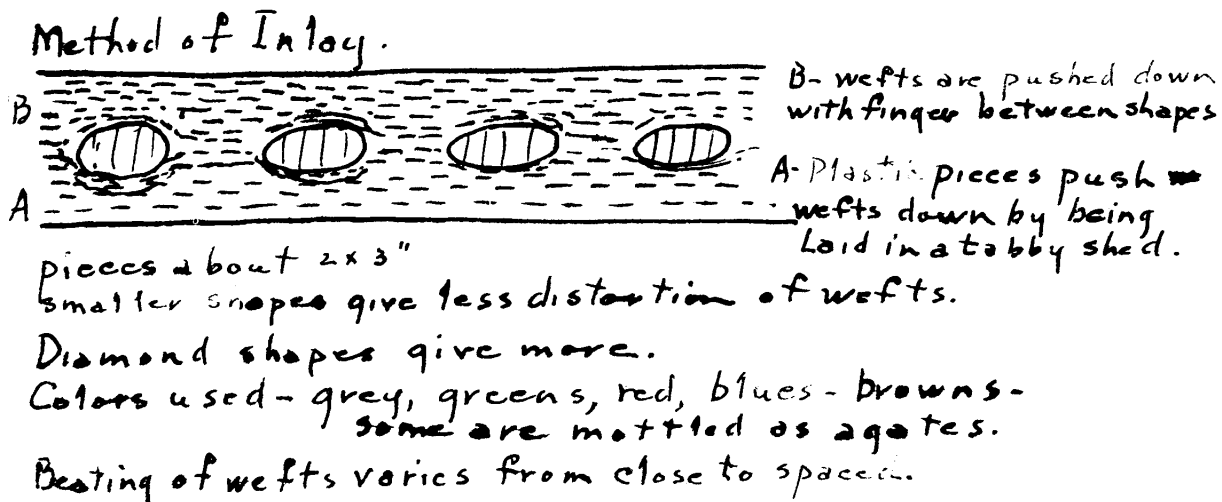 Method of Inlay.
B
A
B- wefts are pushed down
with finger between shapes
A- Plastic pieces push
wefts down by being
Laid in a tabby shed.
pieces about 2 x 3"
smaller shapes give less distortion of wefts.
Diamond shapes give more.
Colors used - grey, greens, red, blues - browns -
some are mottled as agates.
Beating of wefts varies from close to spaced.